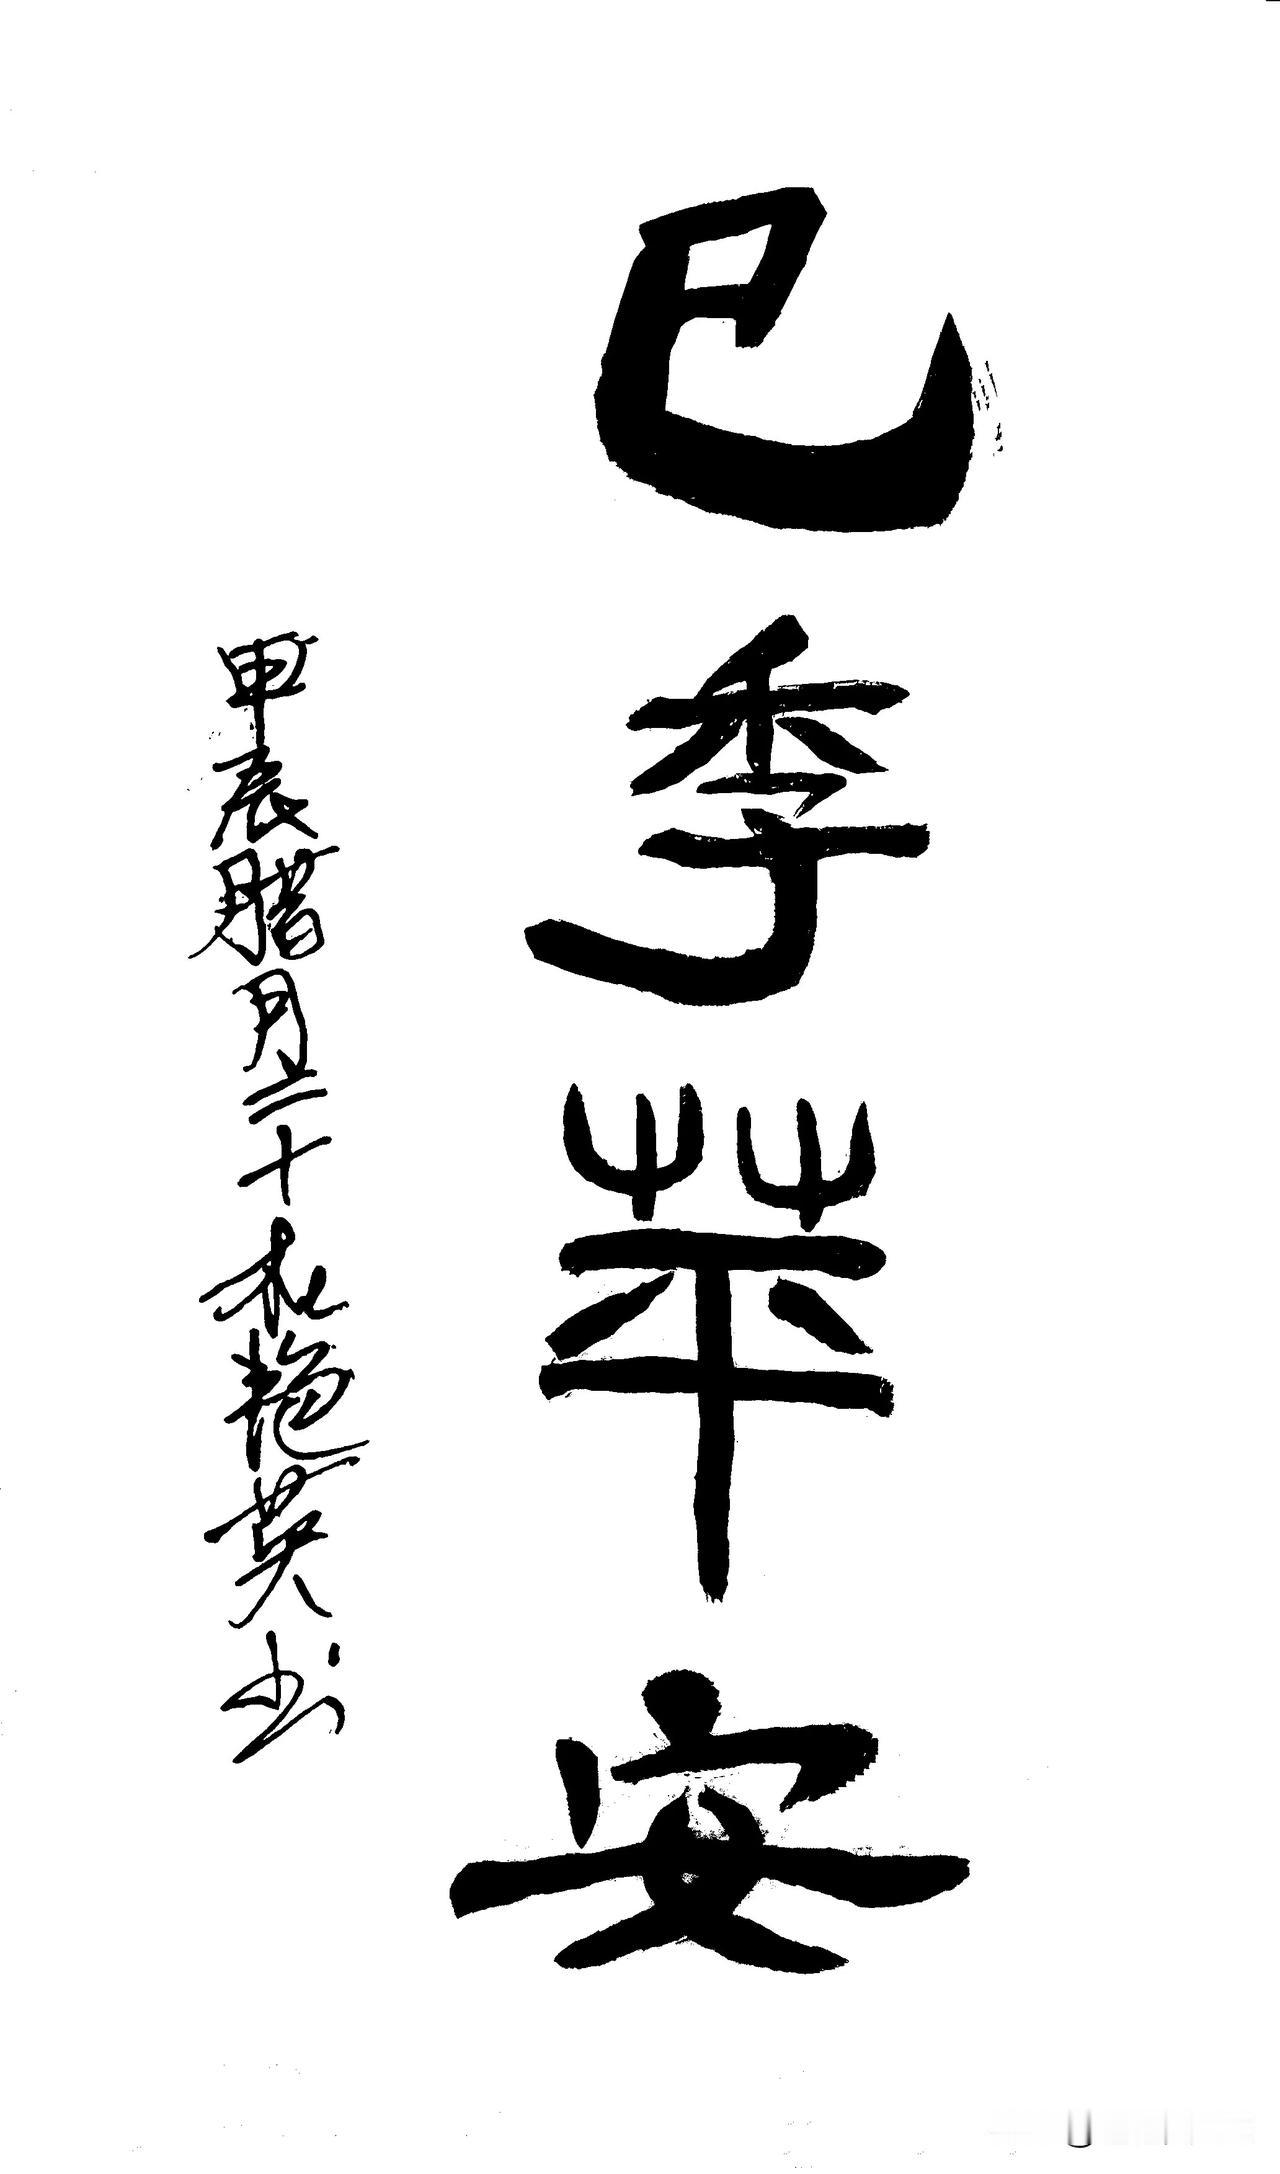 巳季苹安
甲辰腊月二十杜艳英书